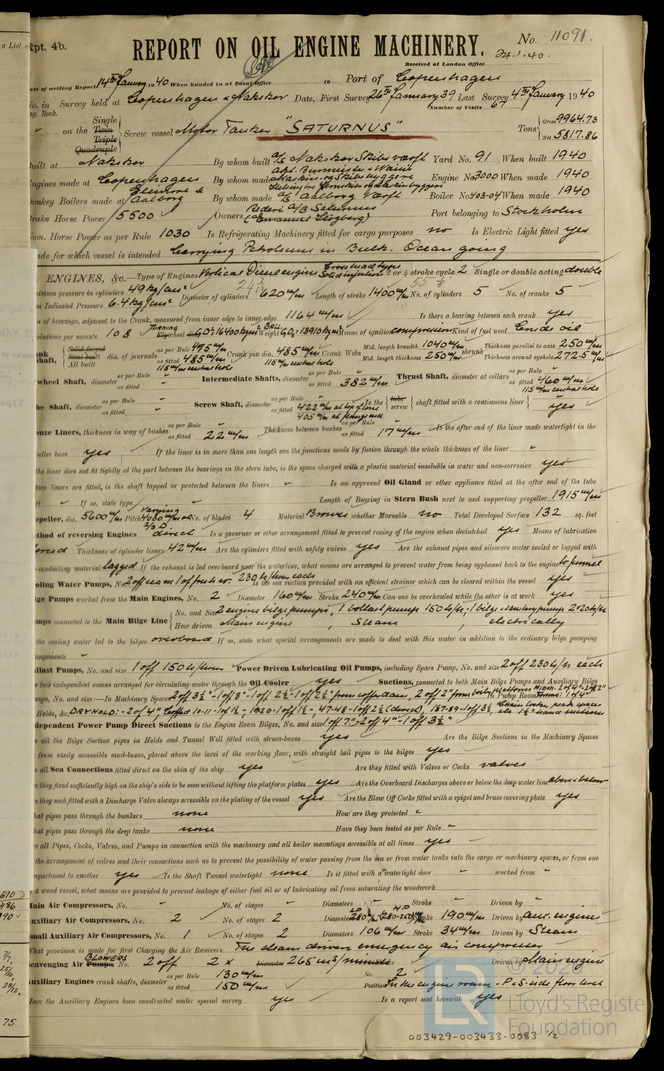 a List o
Rpt. 4b.
REPORT ON OIL ENGINE MACHINERY.
No. 11091.
24.1.40.
Received at London Office
Date of writing Report 14th January 1940 When handed in at Local Office 19 Port of Copenhagen
No. in Survey held at Copenhagen & Nakskov Date, First Survey 26th January 39 Last Survey 4th January 1940
Reg. Book.
Number of Visits 67
Single
Twin
Triple
Quadruple
on the Screw vessel Motor Tanker "SATURNUS"
Tons Gross 9964.73
Net 5817.86
Built at Nakskov By whom built A/S Nakskov Skibsværft Yard No. 91 When built 1940
Engines made at Copenhagen By whom made Akt. Burmeister & Wain's Engine No. 3000 When made 1940
Donkey Boilers made at Aalborg By whom made A/S Aalborg Værft Boiler No. 403-04 When made 1940
Brake Horse Power 5500 Owners Rederi A/B Saturnus Port belonging to Stockholm
Nom. Horse Power as per Rule 1030 Is Refrigerating Machinery fitted for cargo purposes no Is Electric Light fitted yes
Trade for which vessel is intended Carrying Petroleum in Bulk. Ocean going
ENGINES, &c. Type of Engines Vertical Diesel engine 2 or 4 stroke cycle 2 Single or double acting double
Maximum pressure in cylinders 49 kg/cm² Diameter of cylinders 620 m/m Length of stroke 1400 m/m No. of cylinders 5 No. of cranks 5
Mean Indicated Pressure 6.4 kg/cm²
Span of bearings, adjacent to the Crank, measured from inner edge to inner edge 1164 m/m Is there a bearing between each crank yes
Revolutions per minute 108 Means of ignition compression Kind of fuel used Crude oil
Crank Shaft, dia. of journals as per Rule 475 m/m as fitted 485 m/m Crank pin dia. 485 m/m Crank Webs Mid. length breadth 1040 m/m Thickness parallel to axis 250 m/m
Mid. length thickness 250 m/m shrunk Thickness around eyehole 272.5 m/m
115 m/m central hole
Flywheel Shaft, diameter as per Rule as fitted Intermediate Shafts, diameter as per Rule as fitted 382 m/m Thrust Shaft, diameter at collars as per Rule as fitted 460 m/m
Tube Shaft, diameter as per Rule as fitted Screw Shaft, diameter as per Rule as fitted 422 m/m Is the tube screw shaft fitted with a continuous liner yes
Bronze Liners, thickness in way of bushes as per Rule as fitted 22 m/m Thickness between bushes as per Rule as fitted 17 m/m Is the after end of the liner made watertight in the
propeller boss yes If the liner is in more than one length are the junctions made by fusion through the whole thickness of the liner "
If the liner does not fit tightly at the part between the bearings in the stern tube, is the space charged with a plastic material insoluble in water and non-corrosive yes
If two liners are fitted, is the shaft lapped or protected between the liners " Is an approved Oil Gland or other appliance fitted at the after end of the tube
shaft " If so, state type Length of Bearing in Stern Bush next to and supporting propeller 1915 m/m
Propeller, dia. 5600 m/m Pitch varying No. of blades 4 Material Bronze whether Moveable no Total Developed Surface 132 sq. feet
Method of reversing Engines direct Is a governor or other arrangement fitted to prevent racing of the engine when declutched yes Means of lubrication
forced Thickness of cylinder liners 42 m/m Are the cylinders fitted with safety valves yes Are the exhaust pipes and silencers water cooled or lagged with
non-conducting material lagged If the exhaust is led overboard near the waterline, what means are arranged to prevent water from being syphoned back to the engine to funnel
Cooling Water Pumps, No. 230 t/s/hrs each Is the sea suction provided with an efficient strainer which can be cleared within the vessel yes
Bilge Pumps worked from the Main Engines, No. 2 Diameter 160 m/m Stroke 240 m/m Can one be overhauled while the other is at work yes
Pumps connected to the Main Bilge Line No. and Size 2 engine bilge pumps, 1 ballast pump 150 t/s/hr - 1 bilge & sanitary pump 2x20 t/s/hr
How driven Main engine Steam electrically
Is the cooling water led to the bilges overboard If so, state what special arrangements are made to deal with this water in addition to the ordinary bilge pumping
arrangements "
Ballast Pumps, No. and size 1 off 150 t/s/hour Power Driven Lubricating Oil Pumps, including Spare Pump, No. and size 2 off 230 t/s/h each
Are two independent means arranged for circulating water through the Oil Cooler yes Suctions, connected to both Main Bilge Pumps and Auxiliary
Independent Power Pump Direct Suctions to the Engine Room Bilges, No. and size 1 off 7" - 2 off 4" - 1 off 3½"
Are all the Bilge Suction pipes in Holds and Tunnel Well fitted with strum-boxes yes Are the Bilge Suctions in the Machinery Spaces
led from easily accessible mud-boxes, placed above the level of the working floor, with straight tail pipes to the bilges yes
Are all Sea Connections fitted direct on the skin of the ship yes Are they fitted with Valves or Cocks valves
Are they fixed sufficiently high on the ship's side to be seen without lifting the platform plates yes Are the Overboard Discharges above or below the deep water line above & below
Are they each fitted with a Discharge Valve always accessible on the plating of the vessel yes Are the Blow Off Cocks fitted with a spigot and brass covering plate yes
What pipes pass through the bunkers none How are they protected "
What pipes pass through the deep tanks none Have they been tested as per Rule "
Are all Pipes, Cocks, Valves, and Pumps in connection with the machinery and all boiler mountings accessible at all times yes
Is the arrangement of valves and their connections such as to prevent the possibility of water passing from the sea or from water tanks into the cargo or machinery spaces, or from one
compartment to another yes Is the Shaft Tunnel watertight none Is it fitted with a watertight door " worked from "
If a wood vessel, what means are provided to prevent leakage of either fuel oil or of lubricating oil from saturating the woodwork
Main Air Compressors, No. " No. of stages " Diameters Stroke Driven by
Auxiliary Air Compressors, No. 2 No. of stages 2 Diameters Stroke 190 m/m Driven by aux. engine
Small Auxiliary Air Compressors, No. 1 No. of stages 2 Diameters 106 m/m Stroke 34 m/m Driven by Steam
What provision is made for first Charging the Air Receivers The steam driven emergency air compressor
Scavenging Air Pumps, BLOWERS 2 off 2 x 265 m³/minute Driven by Main engine
Auxiliary Engines crank shafts, diameter as per Rule 130 m/m as fitted 150 m/m No. 2
Position In the engine room - P & S side floor level
Have the Auxiliary Engines been constructed under special survey yes Is a report sent herewith yes
LR
© 2020
Lloyd's Register
Foundation
003429-003433-0083 1/2